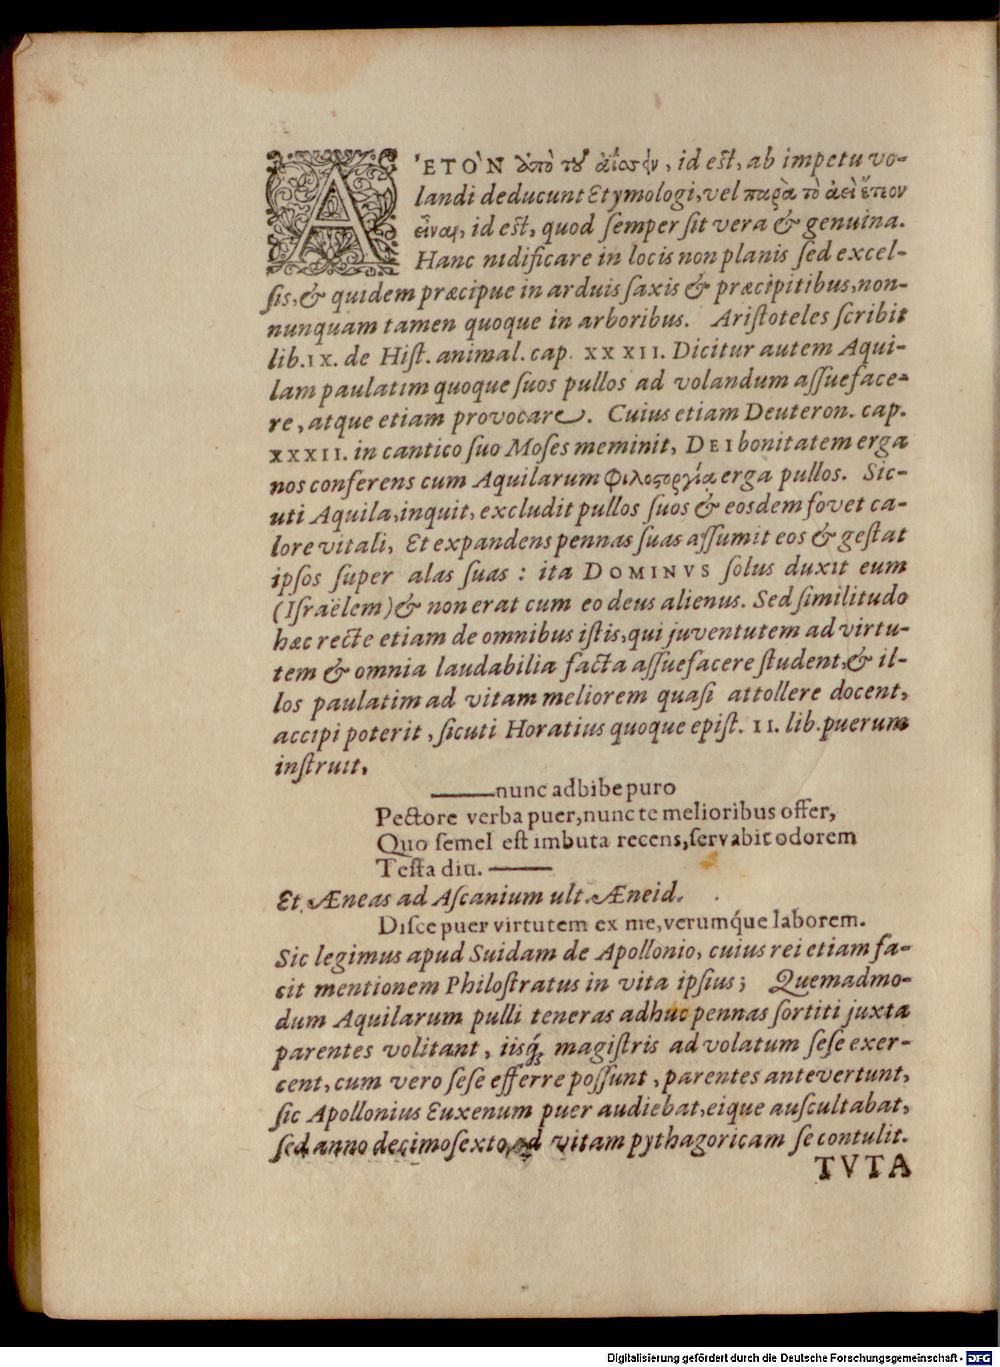 A'ΕΤΟ`Ν ἀπὸ τοῦ ἀΐασειν, id est, ab impetu vo-
landi deducunt Etymologi, vel παρὰ τὸ ἀεὶ ἔτεον
εἶναι, id est, quod ſemper ſit vera & genuina.
Hanc nidificare in locis non planis ſed excel-
ſis, & quidem præcipue in arduis ſaxis & præcipitibus, non-
nunquam tamen quoque in arboribus. Ariſtoteles ſcribit
lib. IX. de Hiſt. animal. cap. XXXII. Dicitur autem Aqui-
lam paulatim quoque ſuos pullos ad volandum aſſueface-
re, atque etiam provocare. Cuius etiam Deuteron. cap.
XXXII. in cantico ſuo Moſes meminit, DEI bonitatem erga
nos conferens cum Aquilarum Φιλοϛοργίᾳ erga pullos. Sic-
uti Aquila, inquit, excludit pullos ſuos & eosdem fovet ca-
lore vitali, Et expandens pennas ſuas aſſumit eos & geſtat
ipſos ſuper alas ſuas : ita DOMINVS ſolus duxit eum
(Iſraëlem) & non erat cum eo deus alienus. Sed ſimilitudo
hæc recte etiam de omnibus iſtis, qui juventutem ad virtu-
tem & omnia laudabilia facta aſſuefacere ſtudent, & il-
los paulatim ad vitam meliorem quaſi attollere docent,
accipi poterit, ſicuti Horatius quoque epiſt. II. lib. puerum
inſtruit,
——nunc adbibe puro
Pectore verba puer, nunc te melioribus offer,
Quo ſemel eſt imbuta recens, ſervabit odorem
Teſta diu. ——
Et Æneas ad Aſcanium ult. Æneid.
Diſce puer virtutem ex me, verumq́ue laborem.
Sic legimus apud Suidam de Apollonio, cuius rei etiam fa-
cit mentionem Philoſtratus in vita ipſius; Quemadmo-
dum Aquilarum pulli teneras adhuc pennas ſortiti juxta
parentes volitant, iisq́ꝫ magiſtris ad volatum ſeſe exer-
cent, cum vero ſeſe efferre poſſunt, parentes antevertunt,
ſic Apollonius Euxenum puer audiebat, eique auſcultabat,
ſed anno decimoſexto, ad vitam pythagoricam ſe contulit.
TVTA
Digitalisierung gefördert durch die Deutsche Forschungsgemeinschaft - DFG